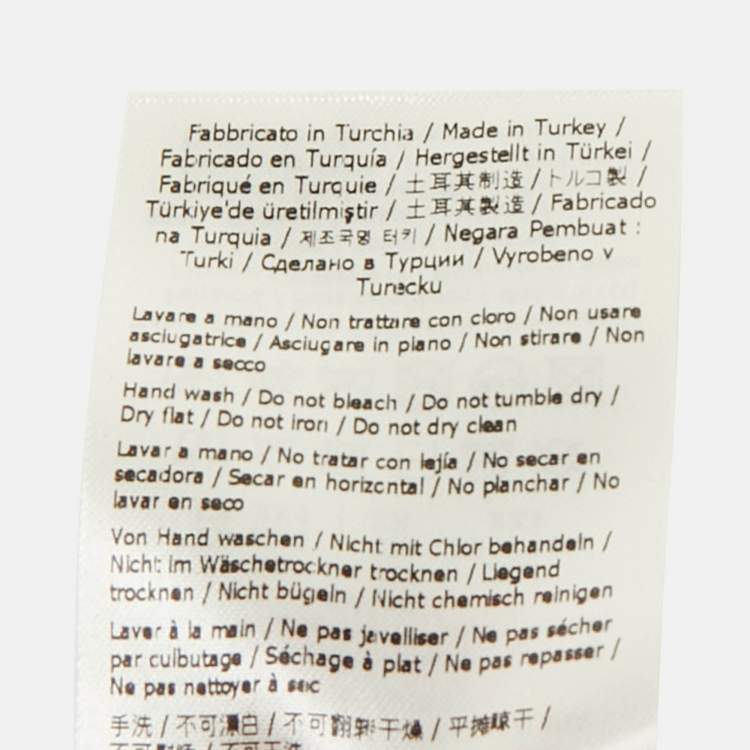 Fabbricato in Turchia / Made in Turkey /
Fabricado en Turquía / Hergestellt in Türkei /
Fabriqué en Turquie / 土耳其制造 / トルコ製 /
Türkiye'de üretilmiştir / 土耳其製造 / Fabricado
na Turquia / 제조국명 터키 / Negara Pembuat :
Turki / Сделано в Турции / Vyrobeno v
Turecku
Lavare a mano / Non trattare con cloro / Non usare
asciugatrice / Asciugare in piano / Non stirare / Non
lavare a secco
Hand wash / Do not bleach / Do not tumble dry /
Dry flat / Do not iron / Do not dry clean
Lavar a mano / No tratar con lejía / No secar en
secadora / Secar en horizontal / No planchar / No
lavar en seco
Von Hand waschen / Nicht mit Chlor behandeln /
Nicht im Wäschetrockner trocknen / Liegend
trocknen / Nicht bügeln / Nicht chemisch reinigen
Laver à la main / Ne pas javelliser / Ne pas sécher
par culbutage / Séchage à plat / Ne pas repasser /
Ne pas nettoyer à sec
手洗 / 不可漂白 / 不可翻转干燥 / 平摊晾干 /